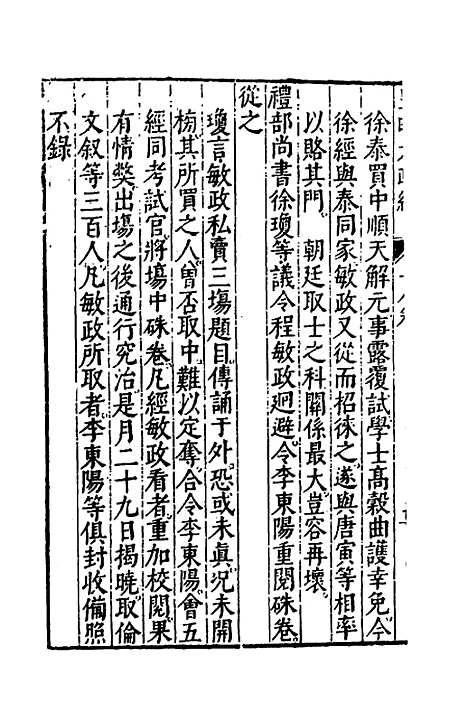 徐泰買中順天解元事露覆試學士高穀曲護幸免今
徐經與泰同家敏政又從而招徠之遂與唐寅等相率
以賂其門 朝廷取士之科關係最大豈容再壞
禮部尚書徐瓊等議令程敏政迴避令李東陽重閱硃卷
從之
瓊言敏政私賣三場題目傳誦于外恐或未真況未開
榜其所買之人曾否取中難以定奪合令李東陽會五
經同考試官將場中硃卷凡經敏政看者重加校閱果
有情獘出場之後通行究治是月二十九日揭曉取倫
文叙等三百人凡敏政所取者李東陽等俱封收備照
不錄